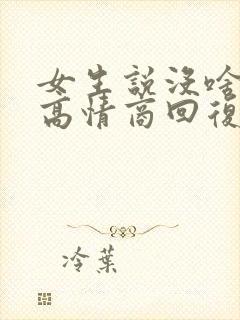 女生説没啥
高情商回復
冷葉